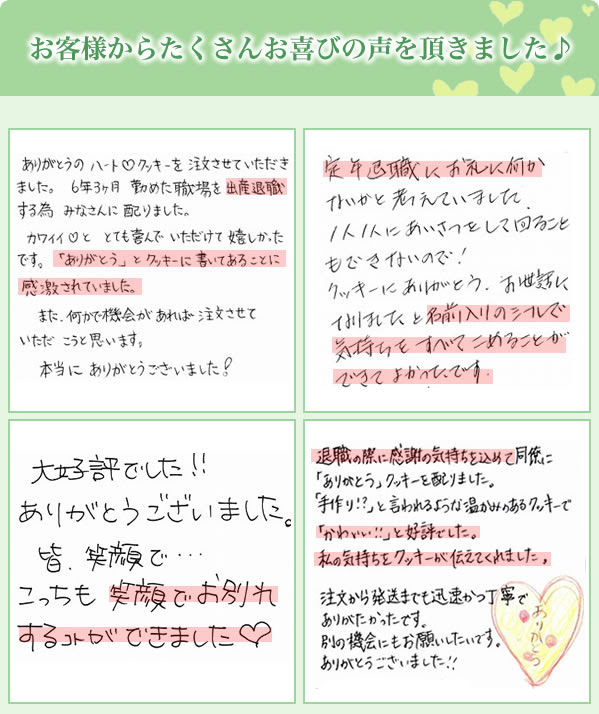 お客様からたくさんお喜びの声を頂きました♪
ありがとうの ハート♡クッキーを 注文させていただき
ました。 6年3ヶ月 勤めた職場を 出産退職
する為 みなさんに 配りました。
カワイイ♡と とても喜んで いただけて 嬉しかった
です。「ありがとう」と クッキーに 書いてあることに
感激されていました。
また、何かで機会があれば 注文させて
いただこうと思います。
本当に ありがとうございました!
定年退職に お礼に何か
ないかと 考えていました。
1人1人に あいさつをして回ること
もできないので!
クッキーに ありがとう、お世話に
なりましたと 名前入りのシールで
気持ちを すべて こめることが
できて よかったです。
大好評でした!!
ありがとうございました。
皆、笑顔で・・・
こっちも 笑顔でお別れ
するコトができました♡
退職の際に感謝の気持ちを込めて同僚に
「ありがとう」クッキーを配りました。
「手作り!?」と言われるような温かみのあるクッキーで
「かわいい!!」と好評でした。
私の気持ちをクッキーが伝えてくれました。
注文から発送までも迅速かつ丁寧で
ありがたかったです。
別の機会にもお願いしたいです。
ありがとうございました!!
ありがとう